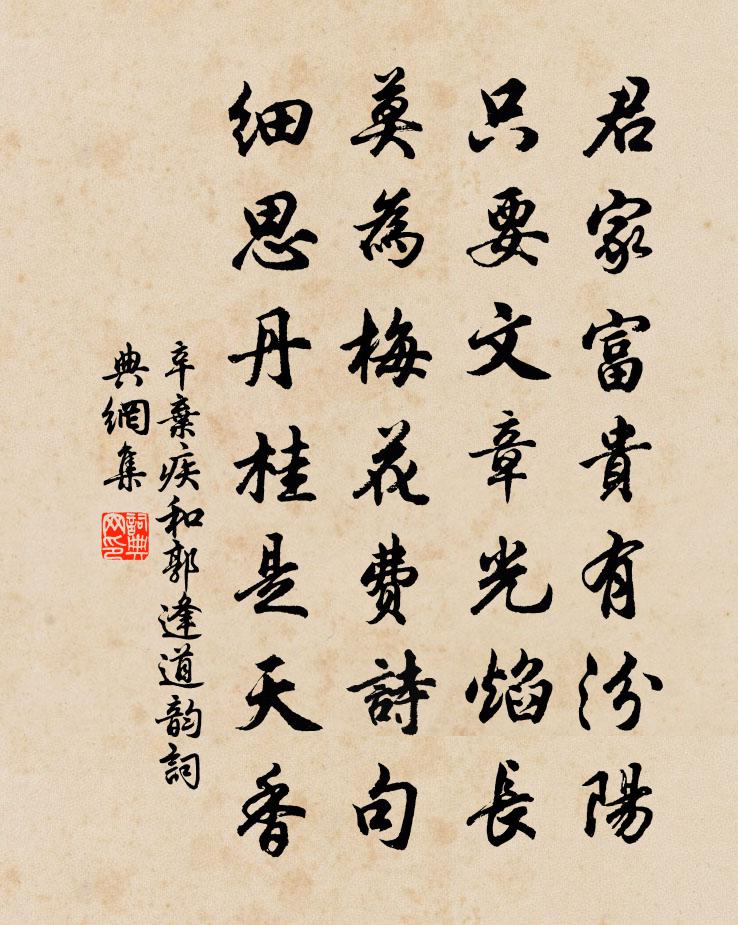 君家富貴有汾陽
只要文章光焰長
莫為梅花費詩句
細思丹桂是天香
辛棄疾和郭逢道韵詞
典網集
詞典网印